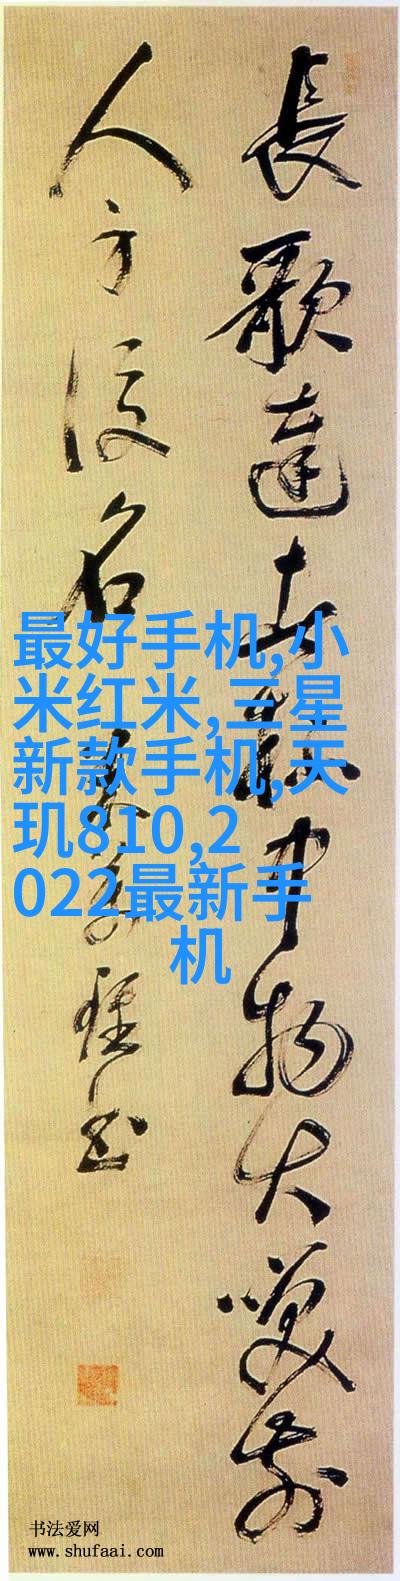 長歌達者杯中物大咲前
人身後名
最好手机,小
米红米,三星
新款手机,天
玑810,2
022最新手
机
书法爱网
www.shufaai.com